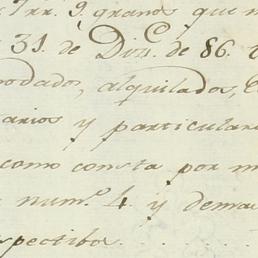 7 rr. 9. granos que
31. de Diz.e de 86.
podados, alquilados,
arios y particular
como consta por m
num.o 4. y demas
spectibos . . . .